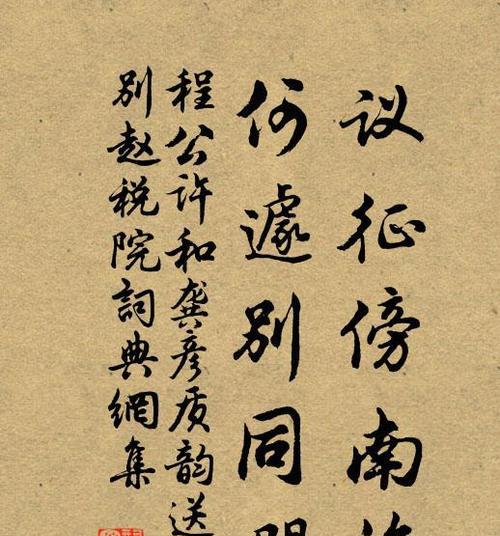 议征傍南
何遽别同
程公许和龚彦质韵送
别赵税院词典網集